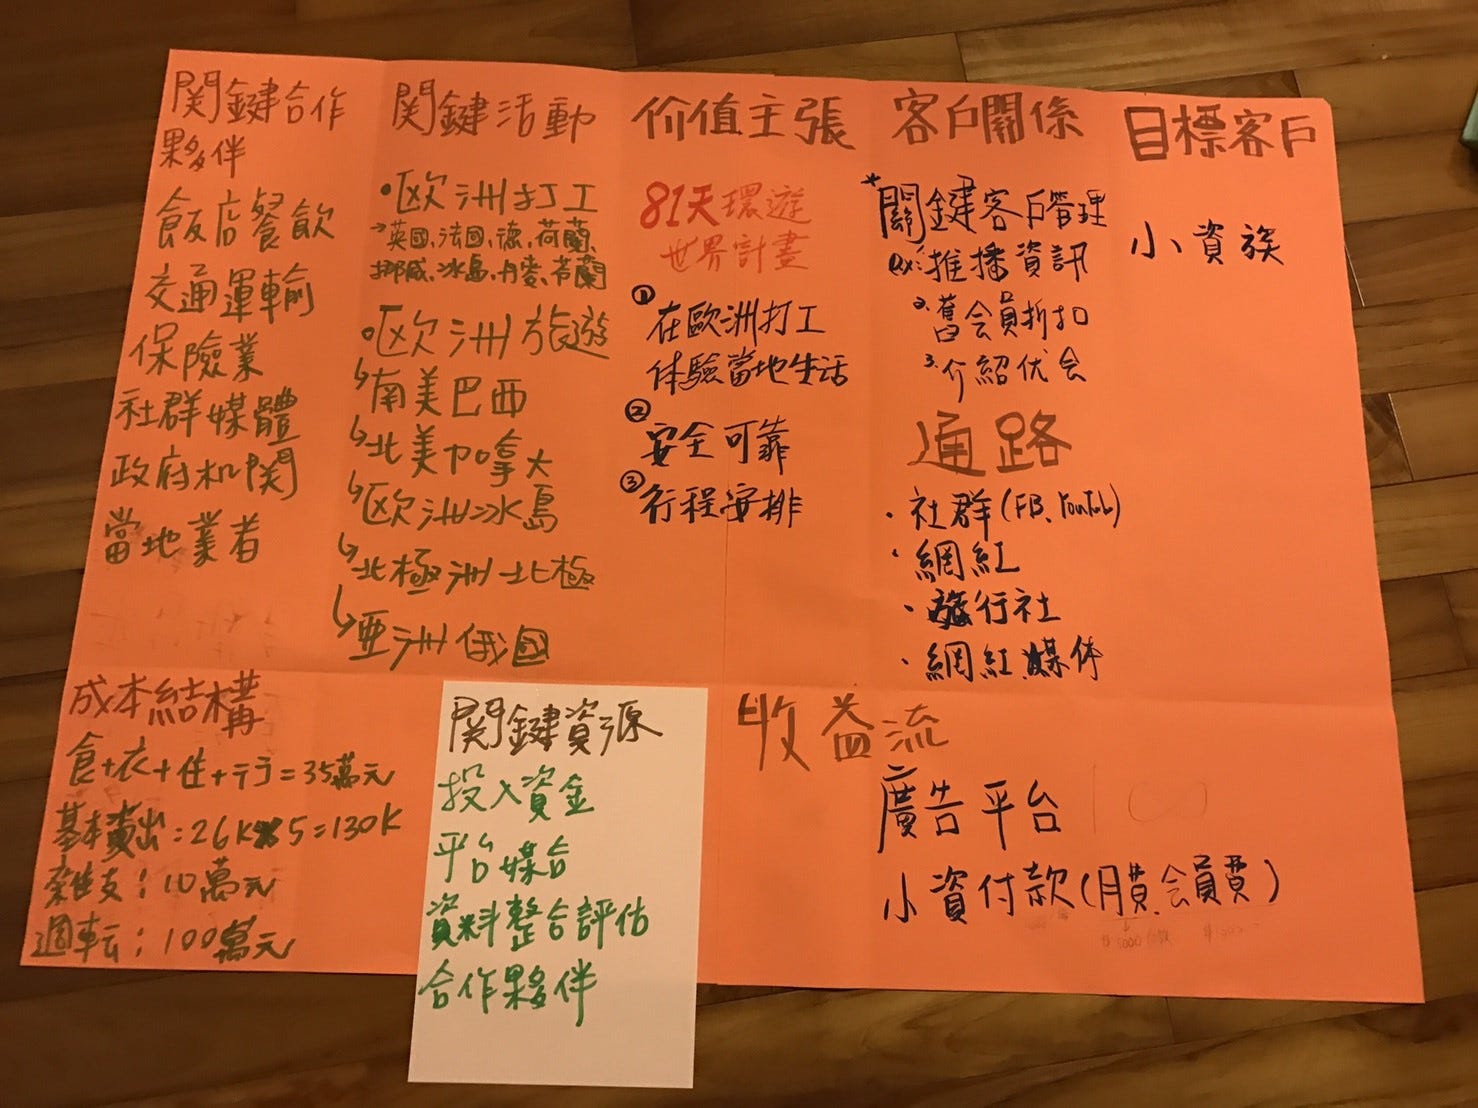 関鍵合作
夥伴
飯店餐飲
交通運輸
保險業
社群媒體
政府机関
當地業者
関鍵活動
•歐洲打工
→英國、法國、德、荷蘭、
挪威、冰島、丹麥、荷蘭
•歐洲旅遊
↳南美巴西
↳北美加拿大
↳歐洲冰島
↳北極洲北極
↳亞洲俄國
价值主張
81天環遊
世界計畫
①在歐洲打工
体驗當地生活
②安全可靠
③行程安排
客戶關係
*關鍵客戶管理
ex:推播資訊
2.舊会員折扣
3.介紹优会
通路
·社群(FB、YouTube)
·網紅
·旅行社
·網紅媒体
目標客戶
小資族
成本結構
食+衣+住+行=35萬元
基本費出:26K×5=130K
雜支:10萬元
週転:100萬元
関鍵資源
投入資金
平台媒合
資料整合評估
合作夥伴
收益流
廣告平台
小資付款(月費、会員費)